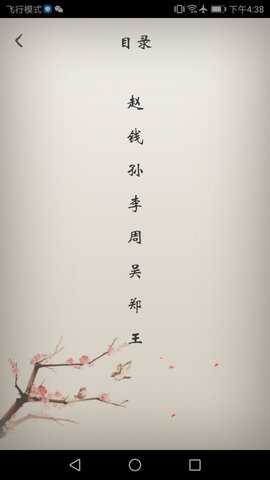 飞行模式 下午4:38
目录
赵
钱
孙
李
周
吴
郑
王